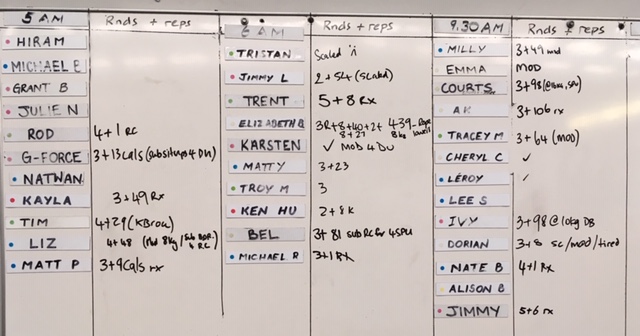 5 AM Rnds + reps
HIRAM
MICHAEL B
GRANT B
JULIE N
ROD 4+1 RC
G-FORCE 3+13cals (subsitups 4 DU)
NATWAN
KAYLA 3+49 Rx
TIM 4+29 (KBrow)
LIZ 4+48 8kg/Sub 4 RC
MATT P 3+9Cals rx
6 AM Rnds + reps
TRISTAN Scaled
JIMMY L 2+54 (scaled)
TRENT 5+8 Rx
ELIZABETH Q 3R+8+40+2+ 439
8+27 8kg
KARSTEN ✓ MOD 4 DU
MATTY 3+23
TROY M 3
KEN HU 2+8K
BEL 3+81 sub RC for 4SPU
MICHAEL R 3+1 Rx
9.30AM Rnds + reps
MILLY 3+49 mod
EMMA MOD
COURTS 3+98
AK 3+106 rx
TRACEY M 3+64 (MOD)
CHERYL C ✓
LEROY ✓
LEE S
IVY 3+98 @10kg DB
DORIAN 3+8 sc/mod/tired
NATE B 4+1 Rx
ALISON B
JIMMY 5+6 rx